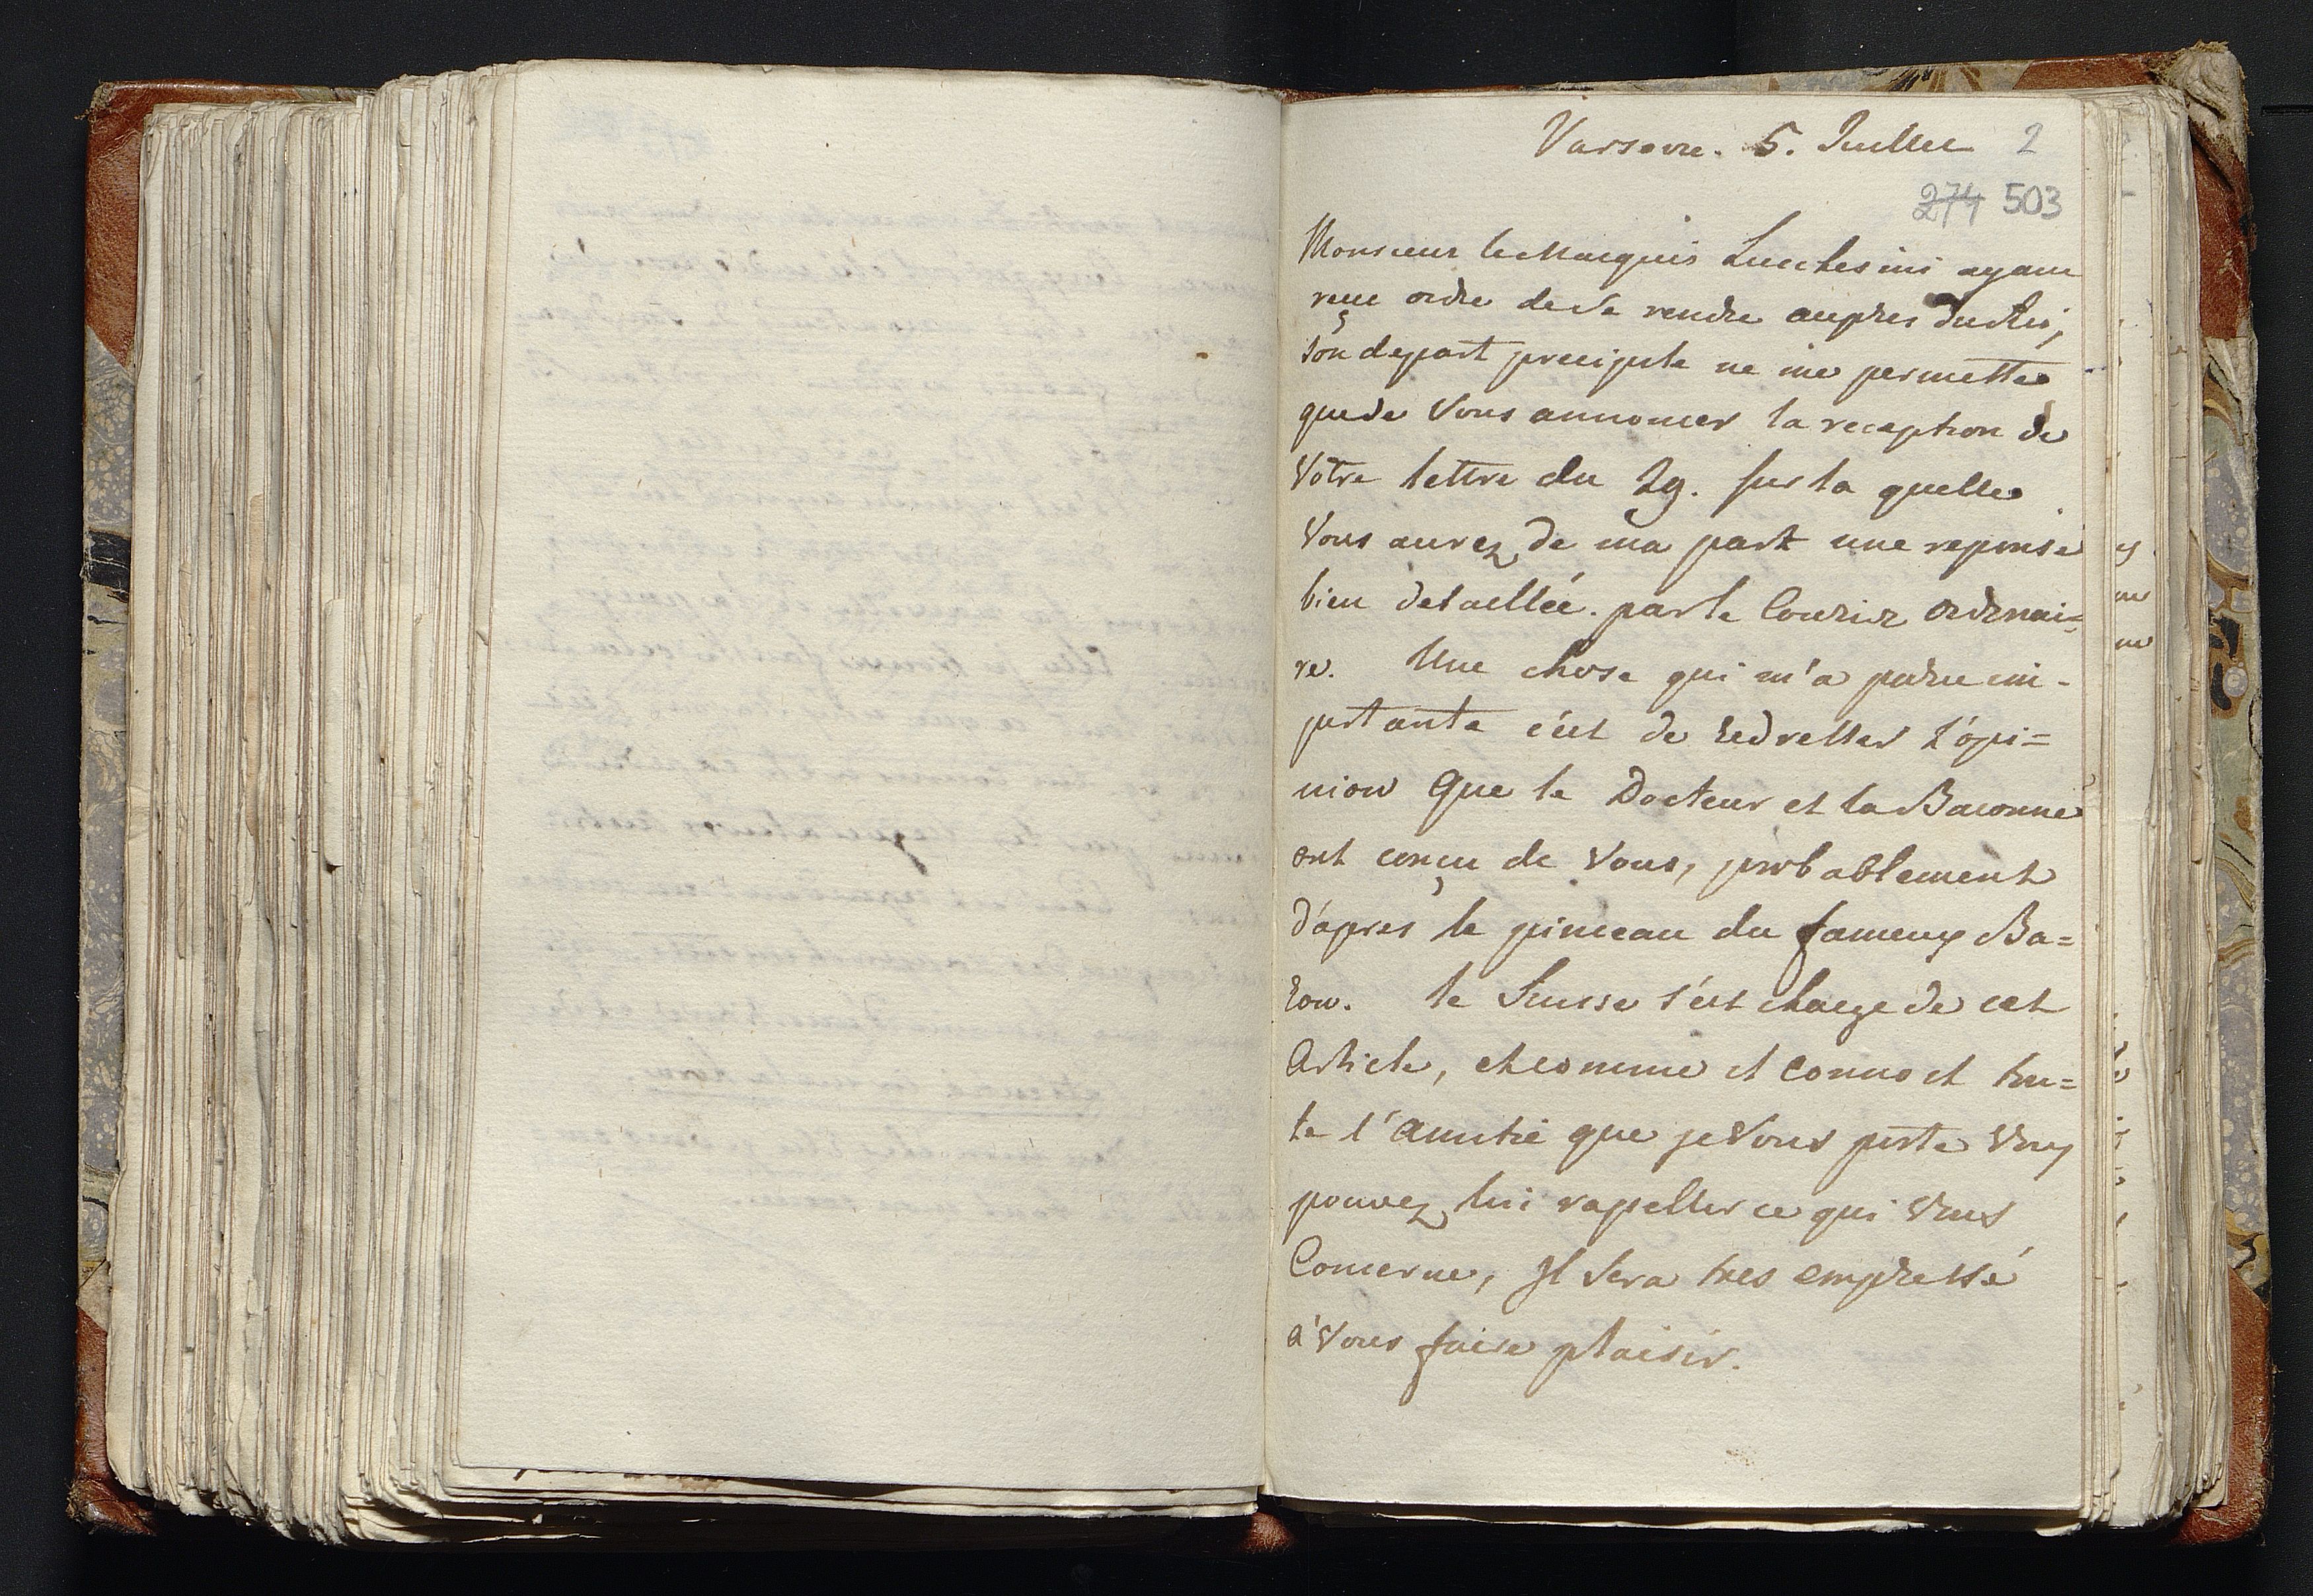 Varsovie. 5. Juillet 2
274 503
Monsieur le Marquis Lucchesini ayant
reçu ordre de se rendre aupres du Roi,
son depart precipite ne me permettes
que de Vous annoncer la reception de
Votre lettre du 29. sur la quelle
Vous aurez de ma part une reponse
bien detaillée. par le Courier Ordinai=
re. Une chose qui m'a parue im-
portante c'est de redresser l'opi=
nion que le Docteur et la Baronne
ont conçu de Vous, probablement
d'apres le pinceau du fameux Ba=
ron. le Suisse s'est charge de cet
Article, et comme il connoit tou=
te l'Amitié que je Vous porte Vous
pouvez lui rapeller ce qui Vous
Concerne, Il sera tres empressé
a Vous faire plaisir.